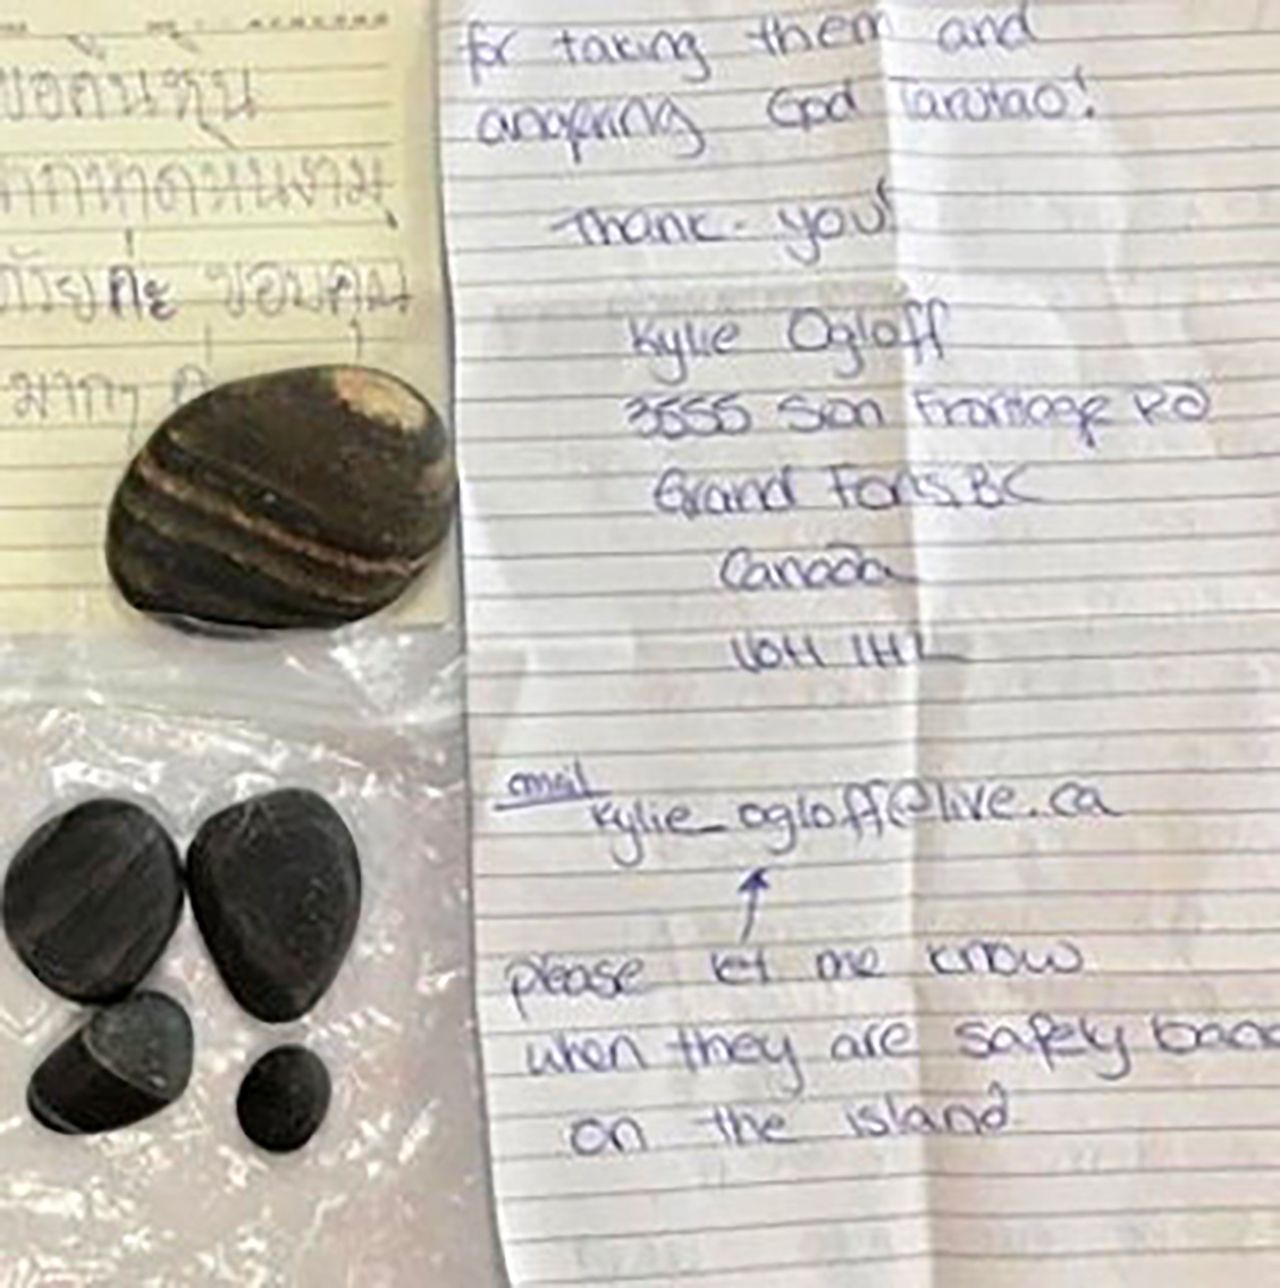 ขอคืนหิน
หาดหินงาม
ด้วยค่ะ ขอบคุณ
มากๆ
for taking them and
angering God Tarutao!
Thank-you!
Kylie Ogloff
3555 Sion Frontage Rd
Grand Forks, BC
Canada
V0H 1H2
email
kylie_ogloff@live.ca
please let me know
when they are safely back
on the island